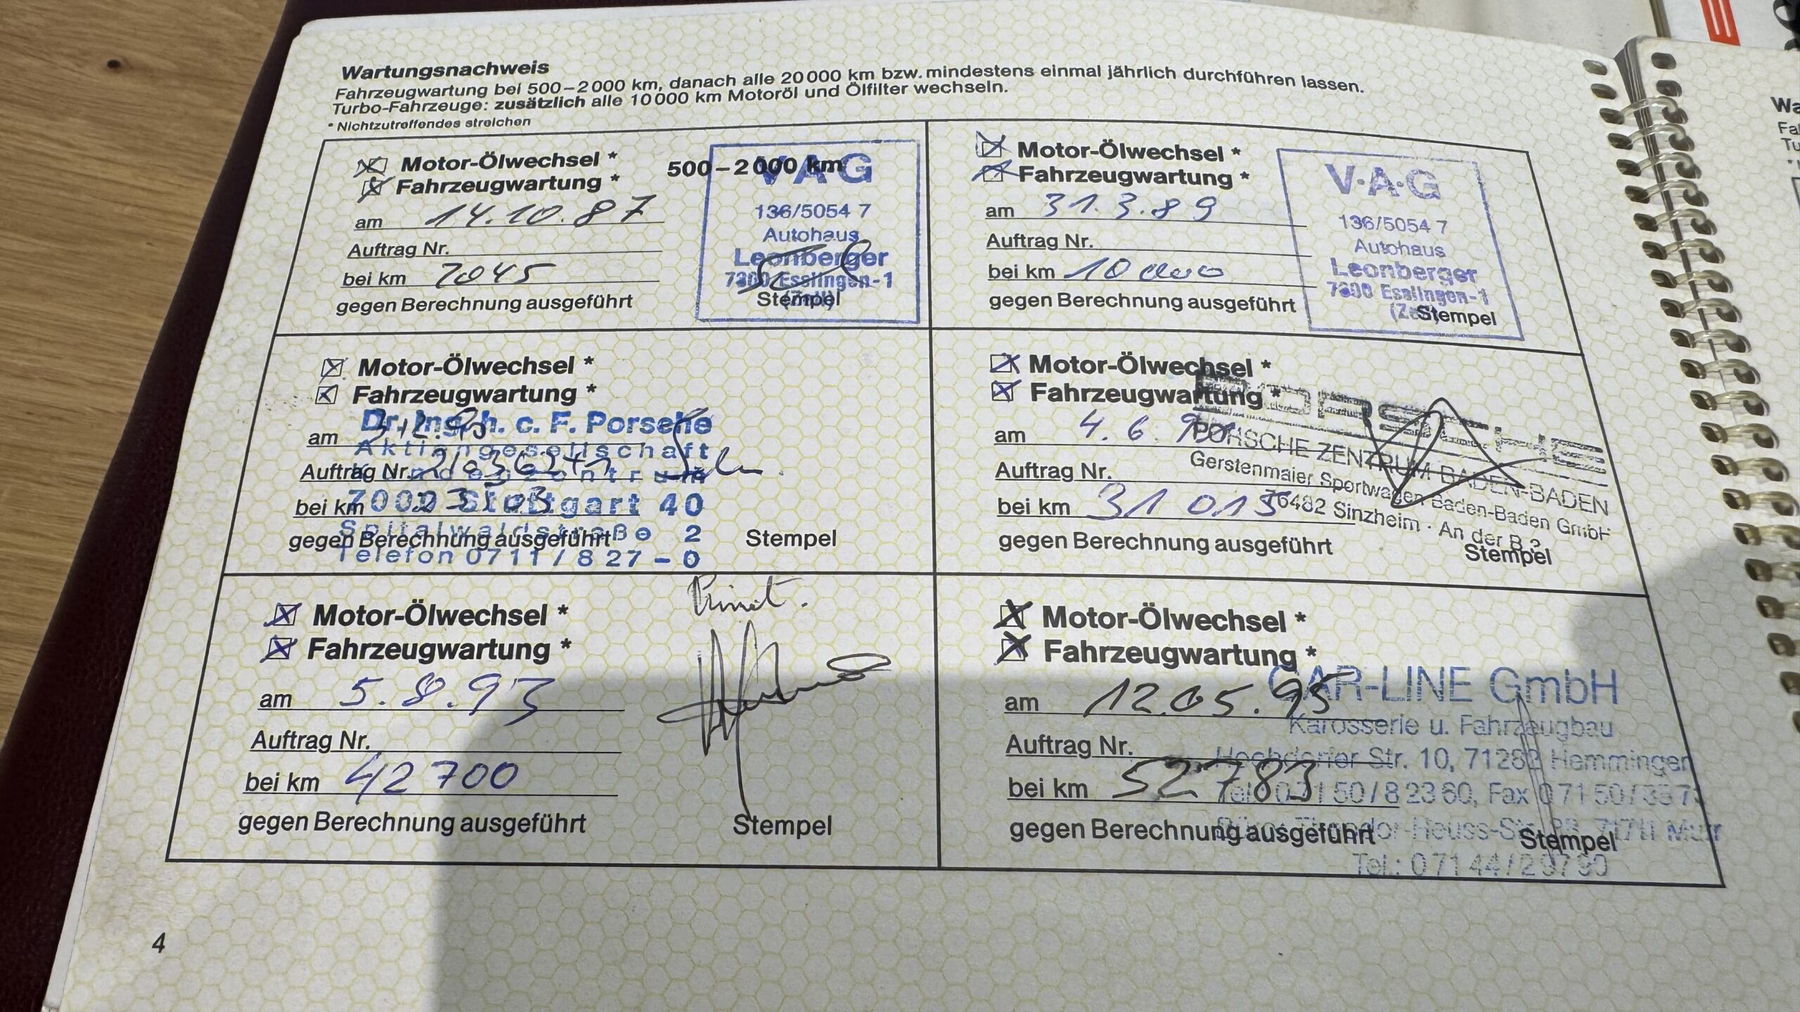 Wartungsnachweis
Fahrzeugwartung bei 500–2000 km, danach alle 20000 km bzw. mindestens einmal jährlich durchführen lassen.
Turbo-Fahrzeuge: zusätzlich alle 10000 km Motoröl und Ölfilter wechseln.
* Nichtzutreffendes streichen
Motor-Ölwechsel *
Fahrzeugwartung *
500–2000 km
am 14.10.87
Auftrag Nr.
bei km 2045
gegen Berechnung ausgeführt
V·A·G
136/5054 7
Autohaus
Leonberger
7300 Esslingen-1
(Zell)
Stempel
Motor-Ölwechsel *
Fahrzeugwartung *
am 31.3.89
Auftrag Nr.
bei km 10000
gegen Berechnung ausgeführt
V·A·G
136/5054 7
Autohaus
Leonberger
7300 Esslingen-1
(Zell)
Stempel
Motor-Ölwechsel *
Fahrzeugwartung *
am
Auftrag Nr.
bei km
gegen Berechnung ausgeführt
Dr. Ing. h. c. F. Porsche
Aktiengesellschaft
7000 Stuttgart 40
Spitalwaldstraße 2
Telefon 0711/827-0
Stempel
Motor-Ölwechsel *
Fahrzeugwartung *
am 4.6.
Auftrag Nr.
bei km 31 015
gegen Berechnung ausgeführt
PORSCHE
PORSCHE ZENTRUM BADEN-BADEN
Gerstenmaier Sportwagen Baden-Baden GmbH
76482 Sinzheim · An der B 3
Stempel
Motor-Ölwechsel *
Fahrzeugwartung *
am 5.8.93
Auftrag Nr.
bei km 42700
gegen Berechnung ausgeführt
Stempel
Motor-Ölwechsel *
Fahrzeugwartung *
am 12.05.95
Auftrag Nr.
bei km 52783
gegen Berechnung ausgeführt
CAR-LINE GmbH
Karosserie u. Fahrzeugbau
Hochdorfer Str. 10, 71282 Hemmingen
Tel. 07150/82360, Fax 07150/
Theodor-Heuss-Str.
Tel.: 07144/29790
Stempel
4